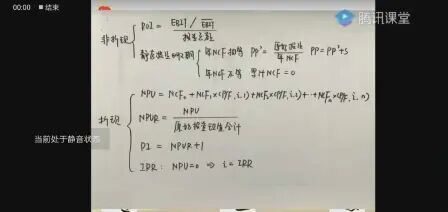 00:00
腾讯课堂
非折现
ROI = EBIT / EBIT
投资总额
静态投资回收期
年NCF相等 PP' = 原始投资 / 年NCF PP = PP'+S
年NCF不等 累计NCF = 0
折现
当前处于静音状态
NPV = NCF₀ + NCF₁×(P/F, i, 1) + NCF₂×(P/F, i, 2) + ··· + NCFₙ×(P/F, i, n)
NPVR = NPV
原始投资现值合计
PI = NPVR+1
IRR: NPV=0 ⇒ i = IRR